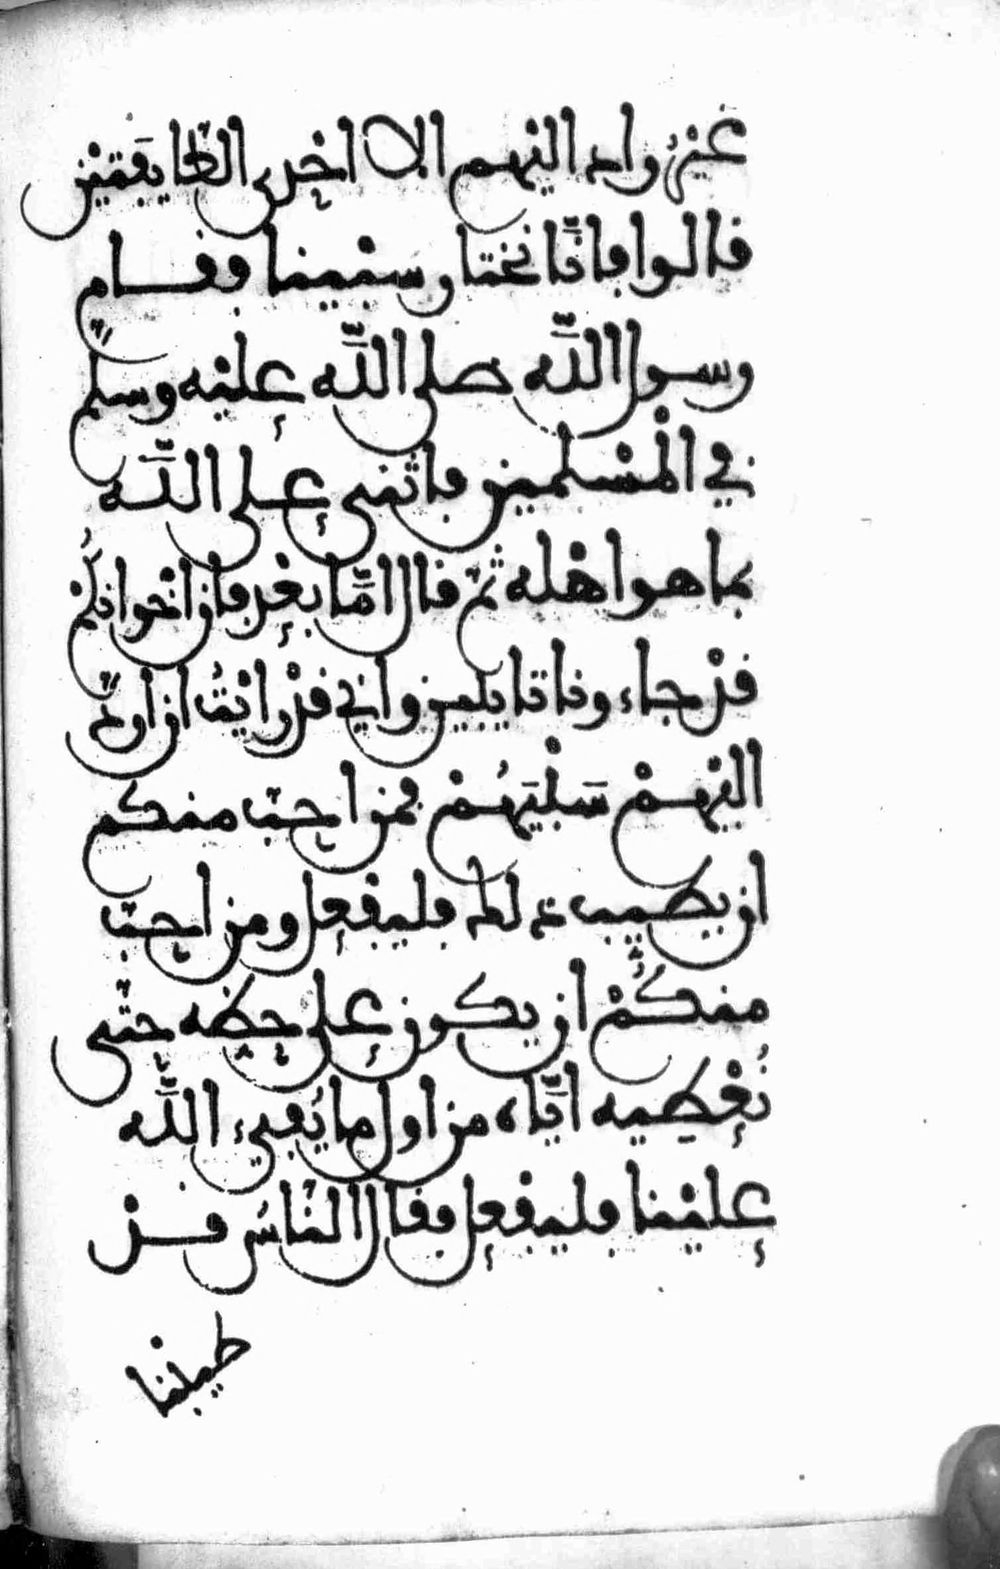 غير راد اليهم الا احدى الطايفتين
قالوا فانا نختار سبينا فقام
رسول الله صلى الله عليه وسلم
في المسلمين فاثنى على الله
بما هو اهله ثم قال اما بعد فان اخوانكم
قد جاءونا تايبين واني قد رايت ان ارد
اليهم سبيهم فمن احب منكم
ان يطيب بذلك فليفعل ومن احب
منكم ان يكون على حظه حتى
نعطيه اياه من اول ما يفيء الله
علينا فليفعل فقال الناس قد
طيبنا